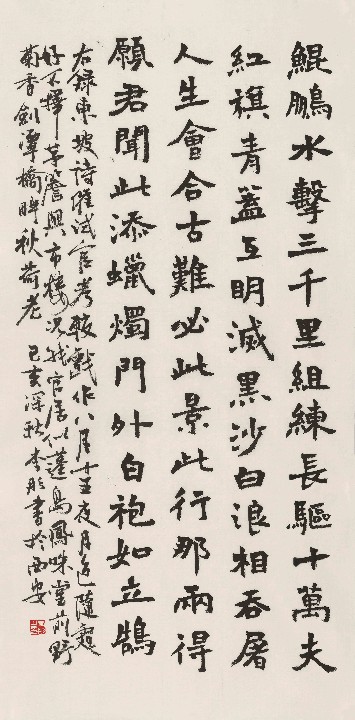 鯤鵬水擊三千里組練長驅十萬夫
紅旗青蓋互明滅黑沙白浪相吞屠
人生會合古難必此景此行那兩得
願君聞此添蠟燭門外白袍如立鵠
右錄東坡詩催試官考較戲作八月十五夜月色隨處
好不擇茅簷與市樓況我官居似蓬島鳳咮堂前野
菊香劍潭橋畔秋荷老 己亥深秋李彤書於西安